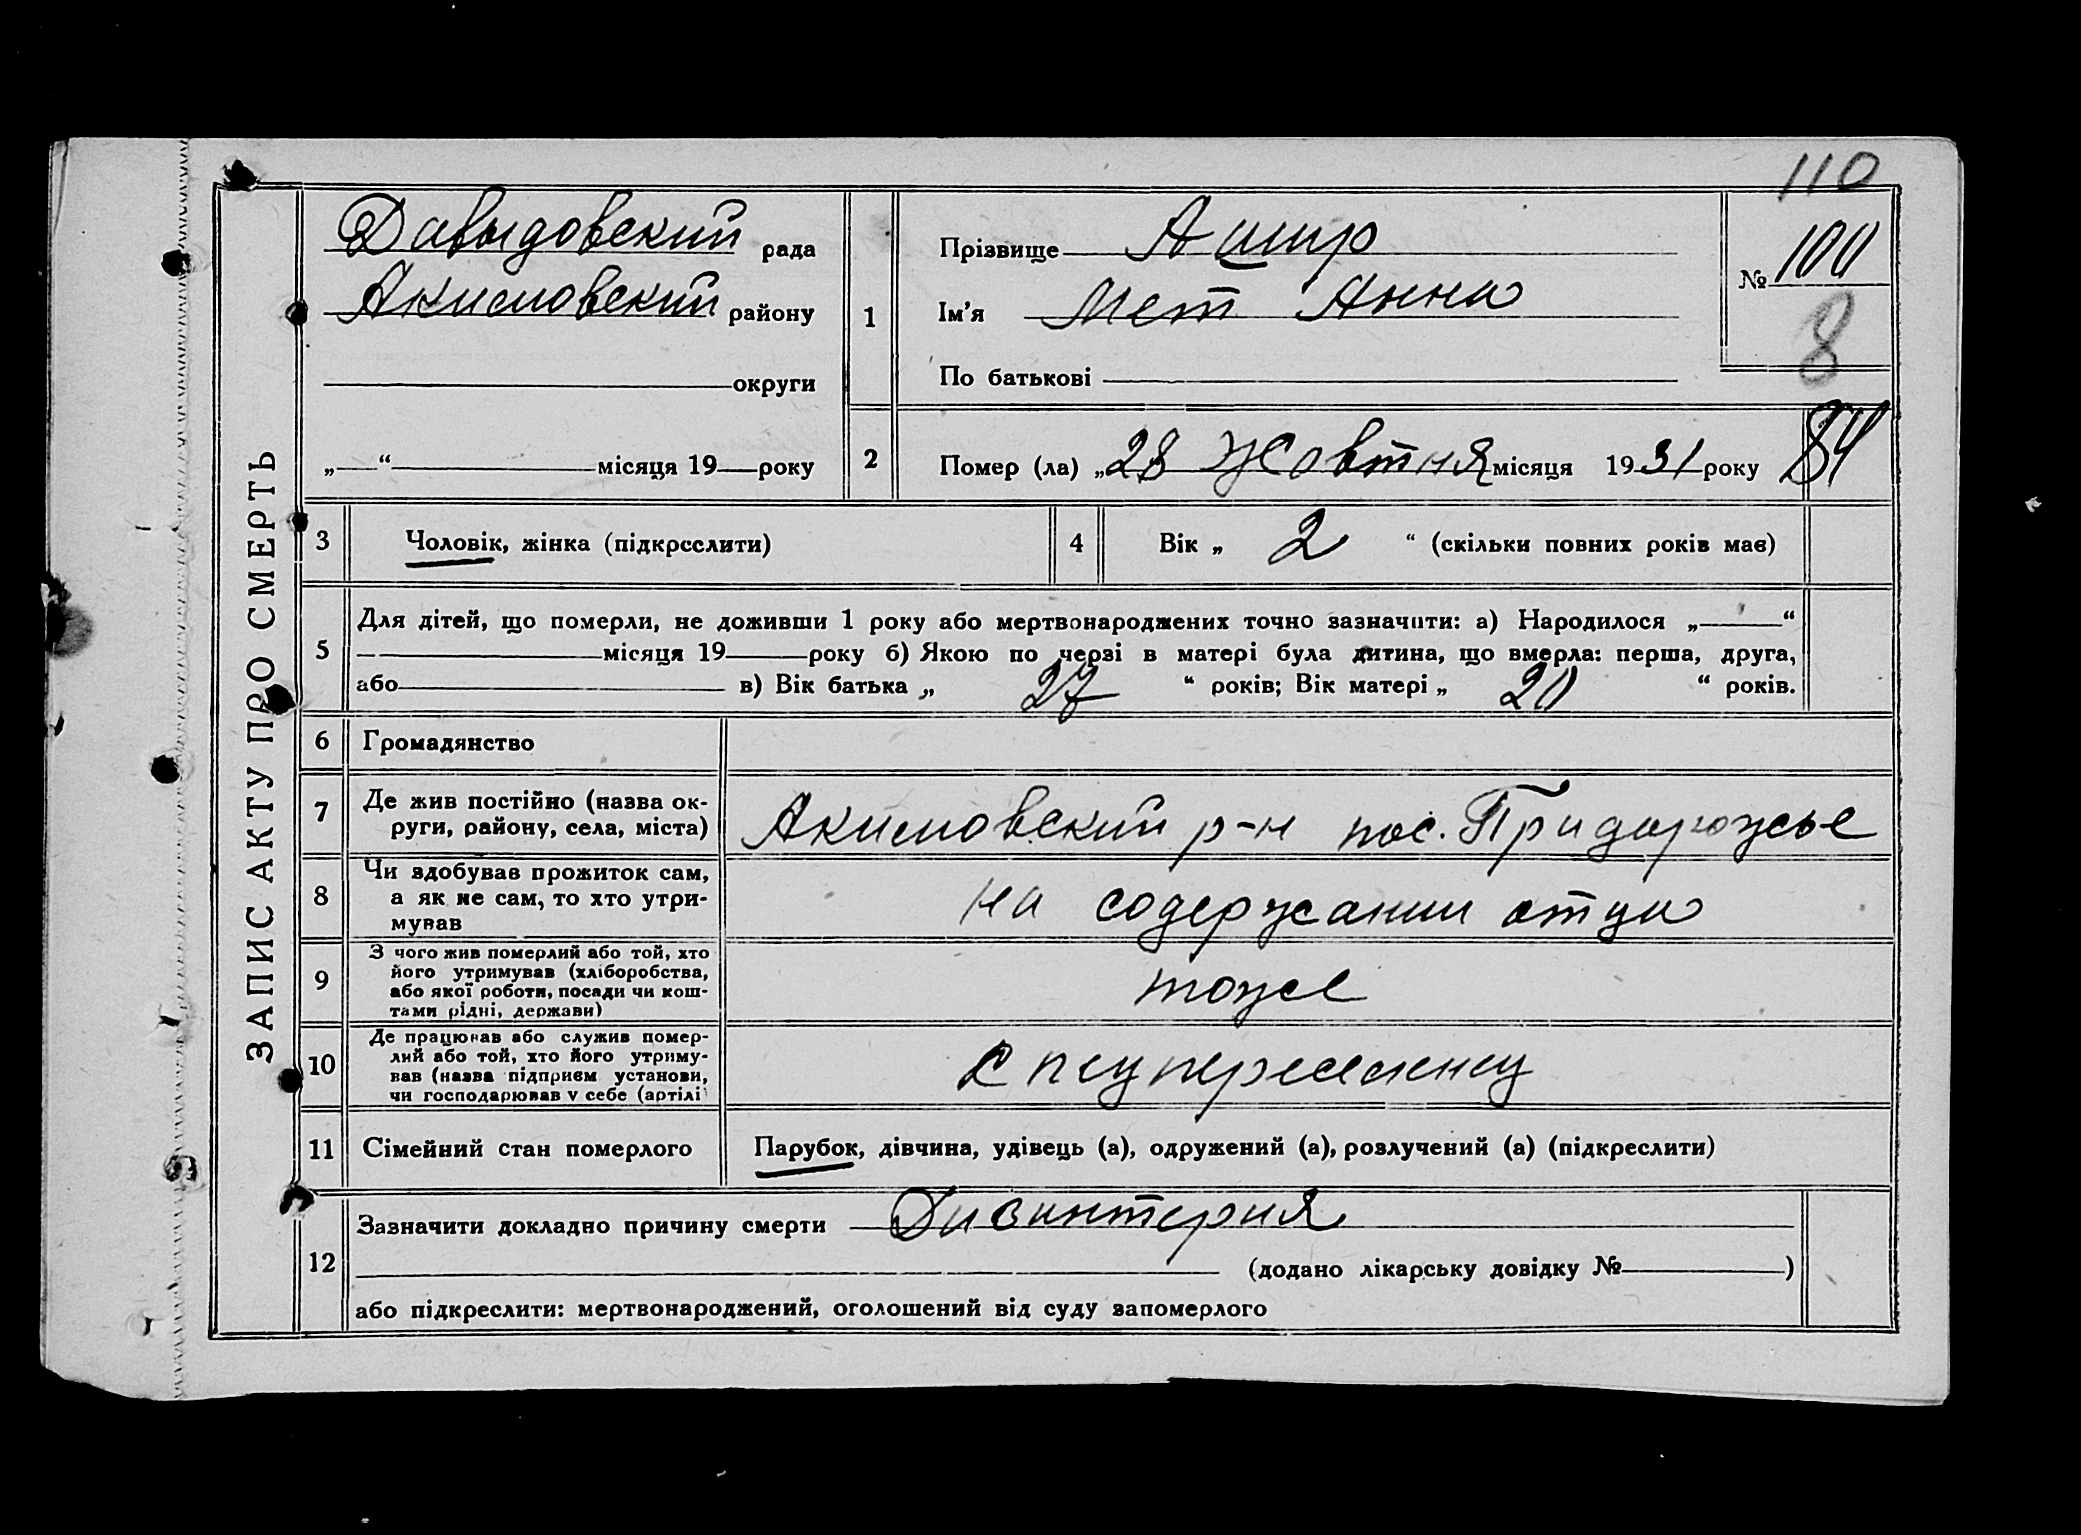 110
ЗАПИС АКТУ ПРО СМЕРТЬ
Давыдовский рада
Акимовский району
округи
„ “ місяця 19 року
1
Прізвище Ашир
Ім'я Мет Анна
По батькові
№ 100
8
2
Помер (ла) „28 Жовтня місяця 1931 року
84
3
Чоловік, жінка (підкреслити)
4
Вік „ 2 “ (скільки повних років має)
5
Для дітей, що померли, не доживши 1 року або мертвонароджених точно зазначити: а) Народилося „ “
місяця 19 року б) Якою по черзі в матері була дитина, що вмерла: перша, друга,
або в) Вік батька „ 27 “ років; Вік матері „ 20 “ років.
6
Громадянство
7
Де жив постійно (назва ок-
руги, району, села, міста)
Акимовский р-н пос. Придорожье
8
Чи здобував прожиток сам,
а як не сам, то хто утри-
мував
на содержании отца
9
З чого жив померлий або той, хто
його утримував (хліборобства,
або якої роботи, посади чи кош-
тами рідні, держави)
тоже
10
Де працював або служив помер-
лий або той, хто його утриму-
вав (назва підприєм установи,
чи господарював у себе (артілі
11
Сімейний стан померлого
Парубок, дівчина, удівець (а), одружений (а), розлучений (а) (підкреслити)
12
Зазначити докладно причину смерти Дизинтерия
(додано лікарську довідку № )
або підкреслити: мертвонароджений, оголошений від суду запомерлого